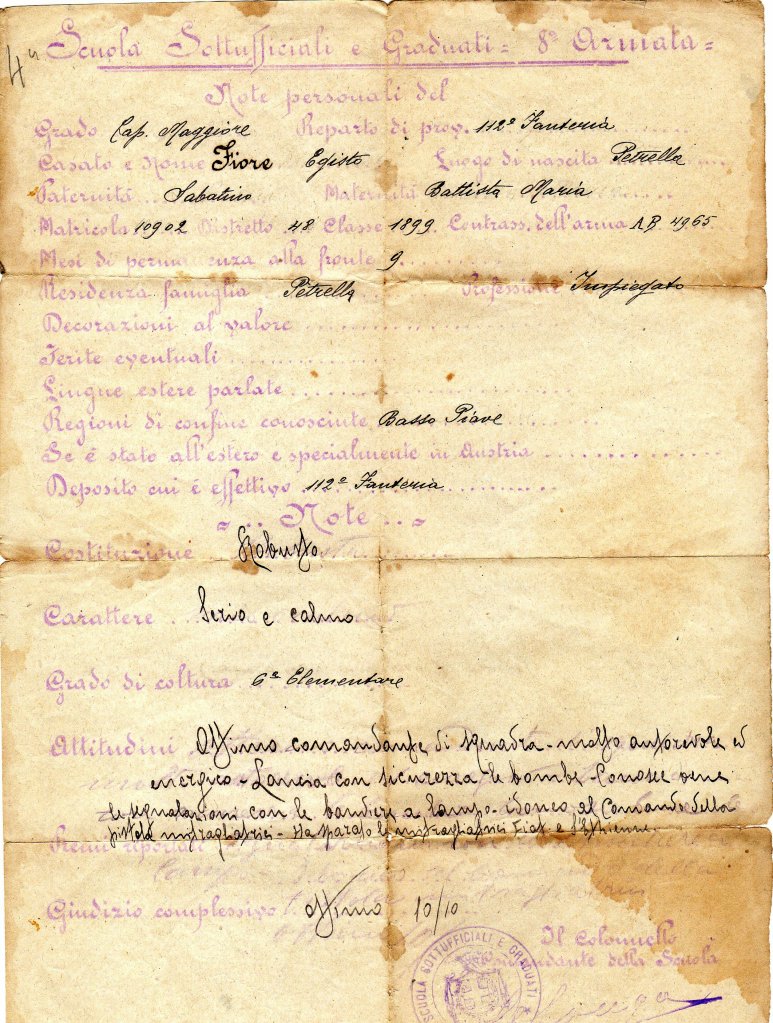 4ª
Scuola Sottufficiali e Graduati = 8ª Armata =
Note personali del
Grado Cap. Maggiore Reparto di prov. 112º Fanteria
Casato e Nome Fiore Egisto Luogo di nascita Petrella
Paternitá Sabatino Maternitá Battista Maria
Matricola 10902 Distretto 48 Classe 1899 Contrass. dell'arma AB 4965
Mesi di permanenza alla fronte 9
Residenza famiglia Petrella Professione Impiegato
Decorazioni al valore
Ferite eventuali
Lingue estere parlate
Regioni di confine conosciute Basso Piave
Se é stato all'estero e specialmente in Austria
Deposito cui é effettivo 112º Fanteria
= .. Note .. =
Costituzione Robusto
Carattere Serio e calmo
Grado di coltura 6ª Elementare
Attitudini Ottimo comandante di squadra - molto autorevole ed
energico - Lancia con sicurezza le bombe - Conosce bene
le segnalazioni con le bandiere a lampo - idoneo al Comando della
pistola mitragliatrici - Ha sparato le mitragliatrici Fiat e S. Etienne.
Premi riportati
Giudizio complessivo Ottimo 10/10
Il Colonnello
Comandante della Scuola
SCUOLA SOTTUFFICIALI E GRADUATI